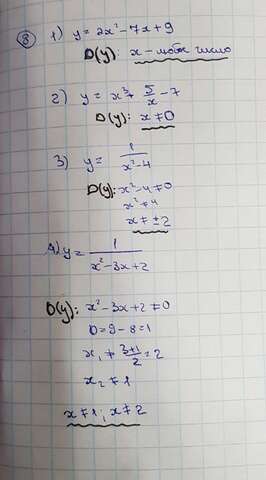 ③ 1) y = 2x² - 7x + 9
D(y): x - любое число
2) y = x³ + 5/x - 7
D(y): x ≠ 0
3) y = 1/(x² - 4)
D(y): x² - 4 ≠ 0
x² ≠ 4
x ≠ ±2
4) y = 1/(x² - 3x + 2)
D(y): x² - 3x + 2 ≠ 0
D = 9 - 8 = 1
x₁ ≠ (3+1)/2 = 2
x₂ ≠ 1
x ≠ 1; x ≠ 2